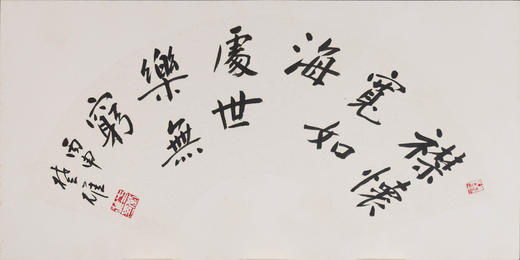 襟懷
寬如
海
處世
樂無
窮
丙申